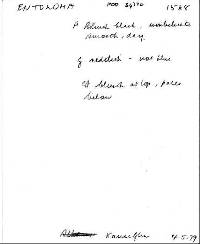 ENTOLOMA
P bluish black, umbilicate
smooth, dry
g reddish - not blue
St bluish at top, paler
below
4.5.79